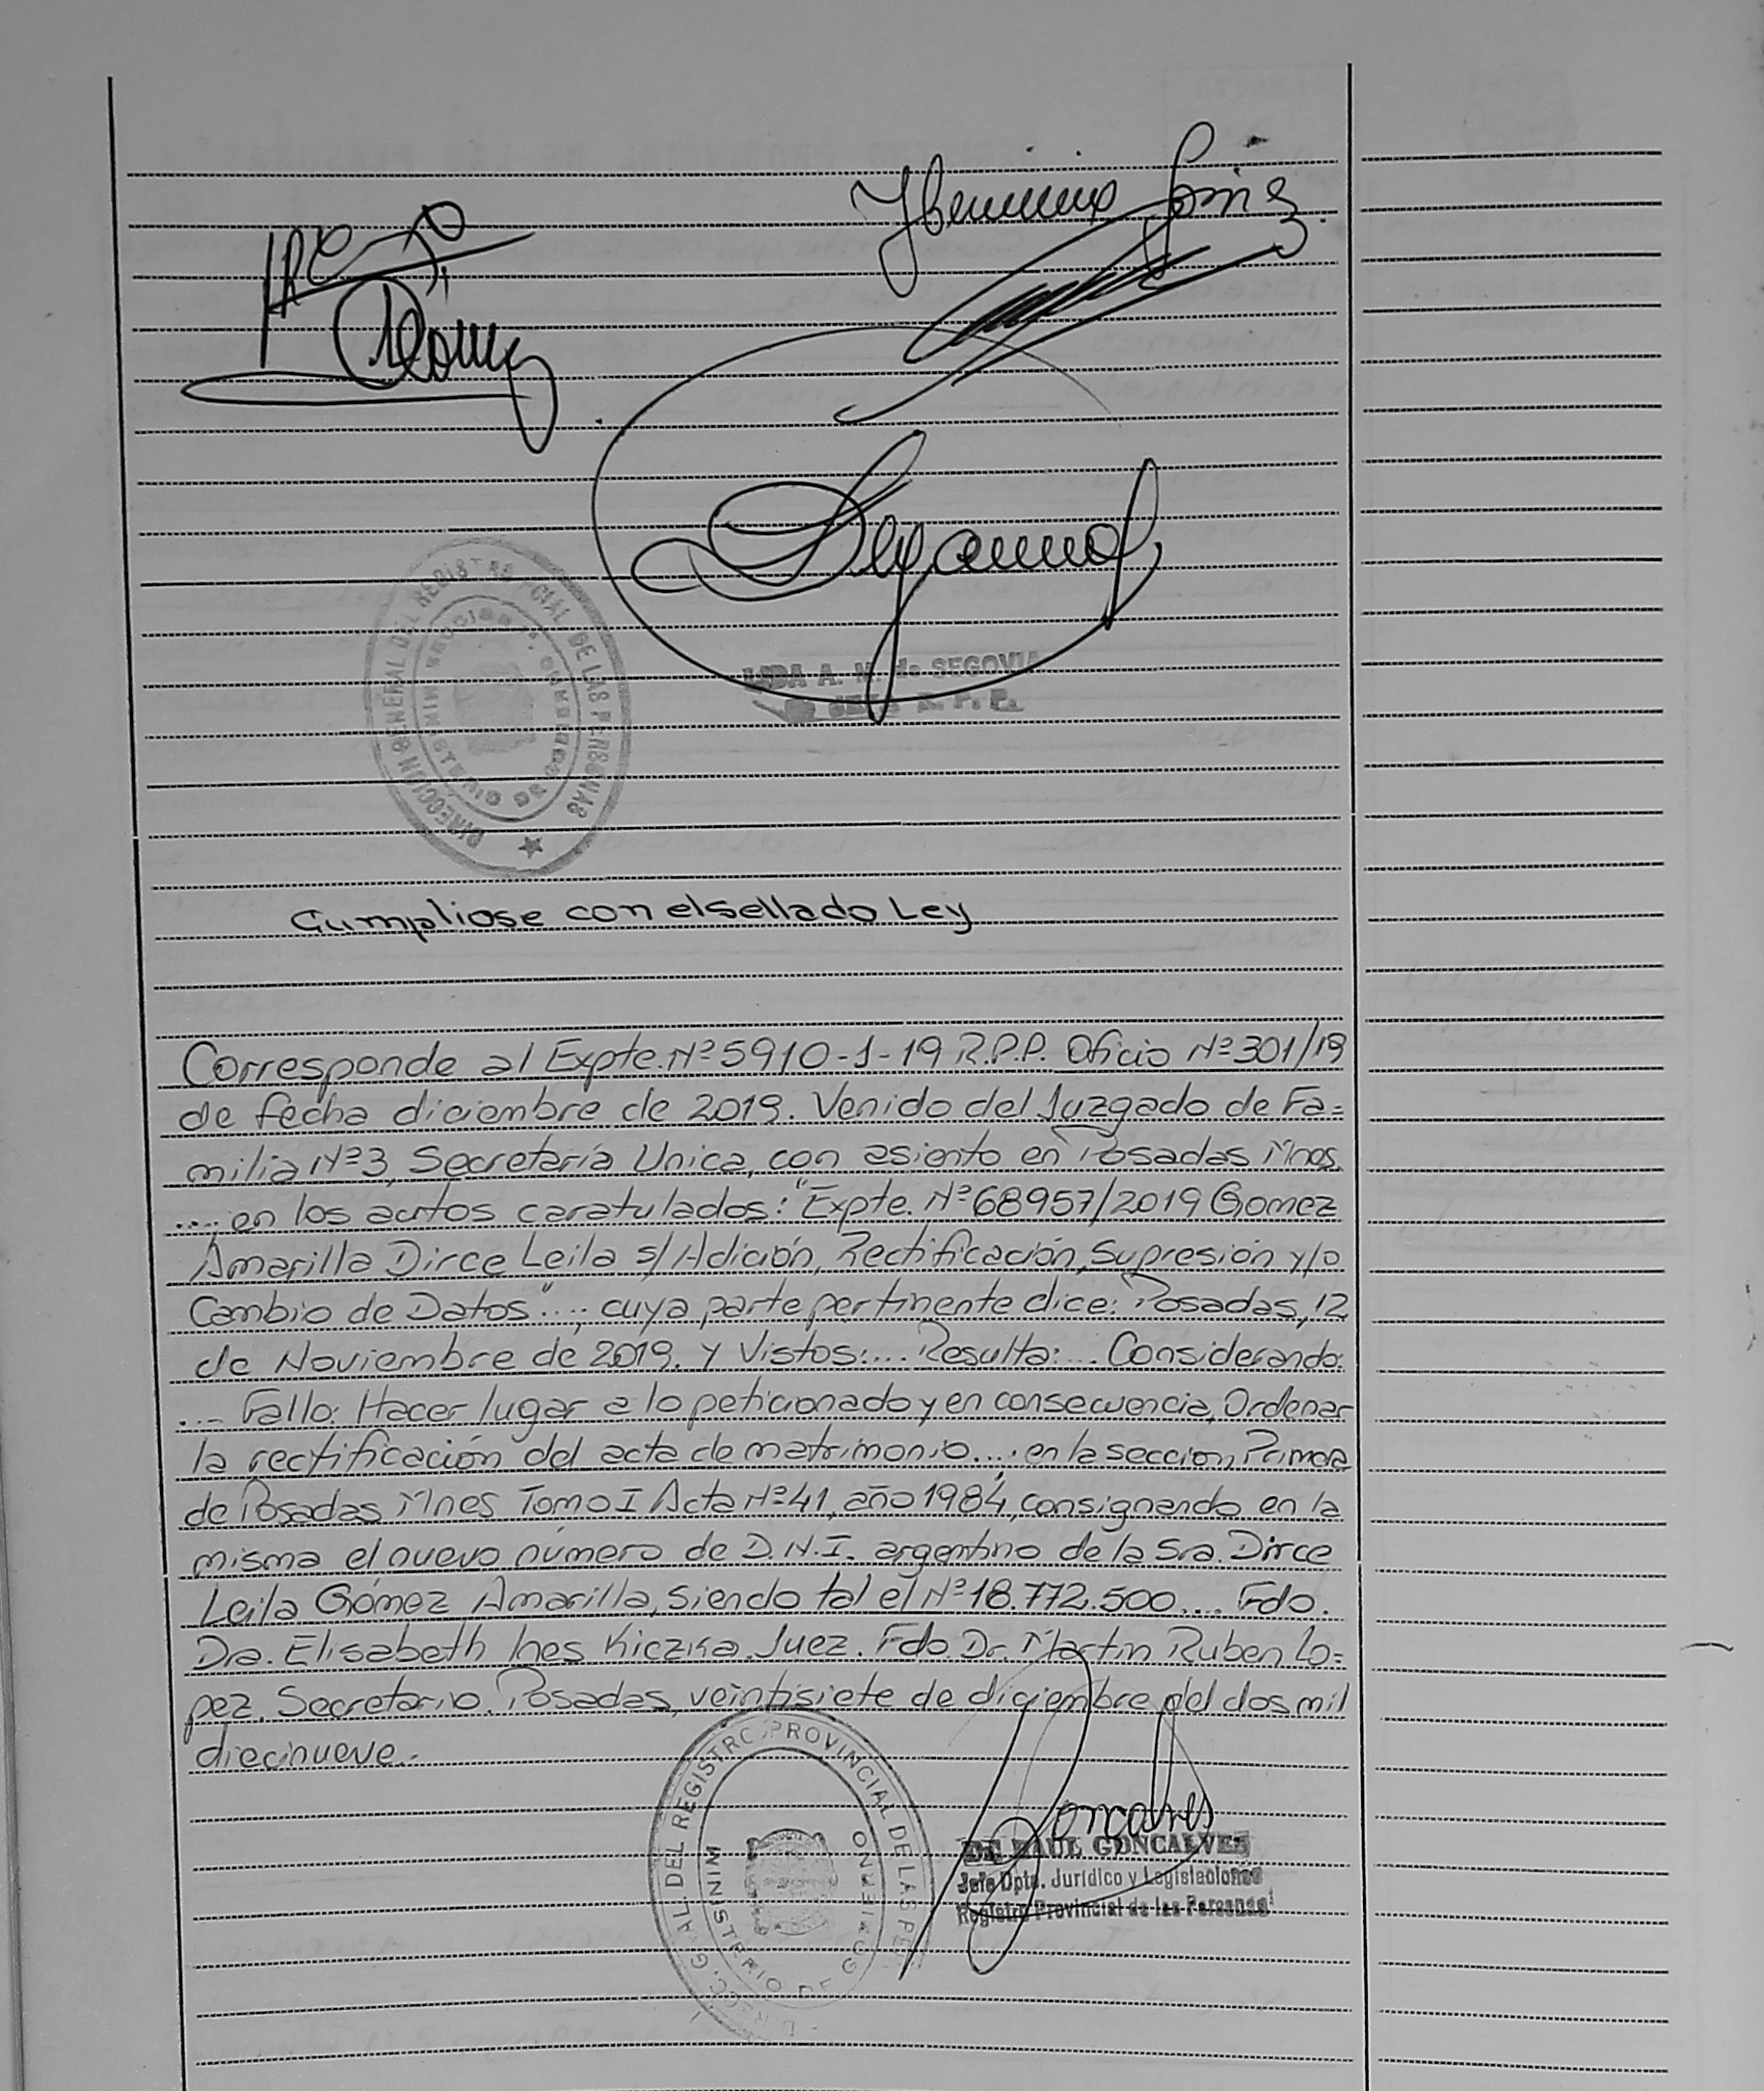 LIDA A. M. de SEGOVIA
JEFA R. P. P.
DIRECCION GENERAL DEL REGISTRO PROVINCIAL DE LAS PERSONAS
Cumpliose con el sellado Ley
Corresponde al Expte. Nº 5910-1-19 R.P.P. Oficio Nº 301/19
de fecha diciembre de 2019. Venido del Juzgado de Fa=
milia Nº 3, Secretaría Unica, con asiento en Posadas Mnes.
.... en los autos caratulados: "Expte. Nº 68957/2019 Gomez
Amarilla Dirce Leila s/ Adición, Rectificación, Supresión y/o
Cambio de Datos"...., cuya parte pertinente dice: Posadas, 12
de Noviembre de 2019. Y Vistos:.... Resulta:.... Considerando:
.... Fallo: Hacer lugar a lo peticionado y en consecuencia, Ordenar
la rectificación del acta de matrimonio.... en la seccion Primera
de Posadas Mnes Tomo I Acta Nº 41, año 1984, consignando en la
misma el nuevo número de D.N.I. argentino de la Sra. Dirce
Leila Gómez Amarilla, siendo tal el Nº 18.772.500.... Fdo.
Dra. Elisabeth Ines Kiczka. Juez. Fdo. Dr. Martin Ruben Lo=
pez. Secretario. Posadas, veintisiete de diciembre del dos mil
diecinueve.-
DIRECC. GRAL. DEL REGISTRO PROVINCIAL DE LAS PER
MINISTERIO DE GOBIERNO
RAUL GONCALVES
Jefe Dpto. Jurídico y Legislaciones
Registro Provincial de las Personas